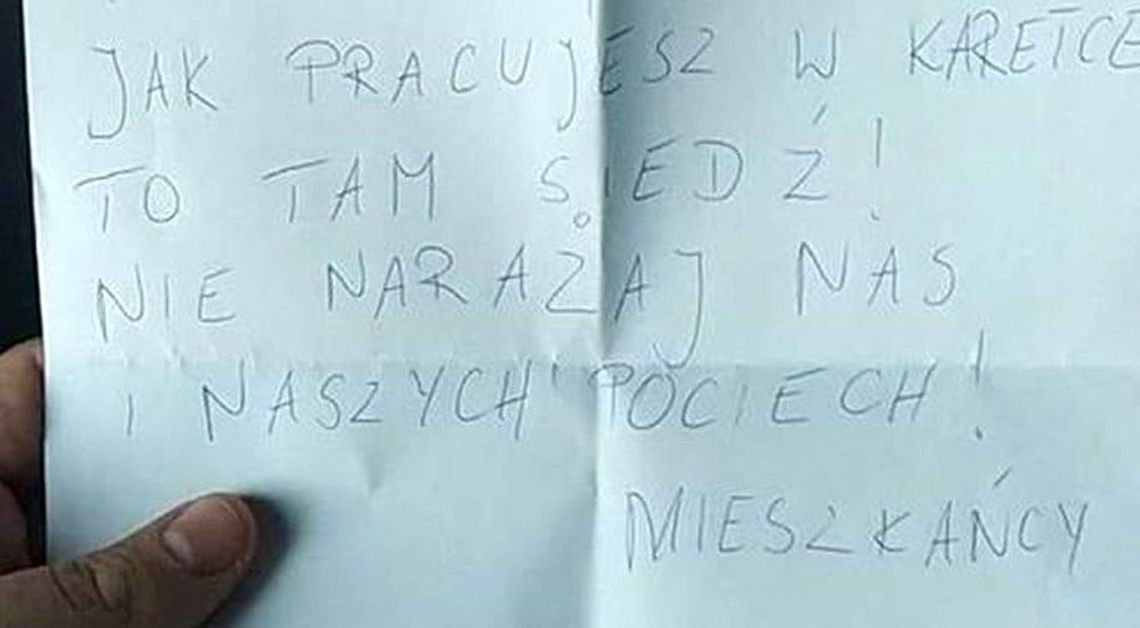 JAK PRACUJESZ W KARETCE
TO TAM SIEDŹ!
NIE NARAŻAJ NAS
I NASZYCH POCIECH!
MIESZKAŃCY